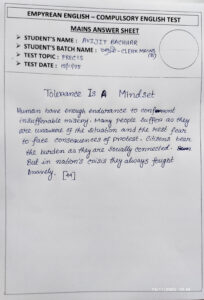 EMPYREAN ENGLISH – COMPULSORY ENGLISH TEST
MAINS ANSWER SHEET
➤ STUDENT'S NAME : AVIJIT
➤ STUDENT'S BATCH NAME : CLERK MAINS
➤ TEST TOPIC : PRECIS
➤ TEST DATE :
Tolerance Is A Mindset
Human have enough endurance to
misery. Many people suffer as they
are unaware of the situation and the rest fear
to face consequences of protest. Citizens bear
the burden as they are socially connected.
But in nation's crisis they always fought
bravely. [44]